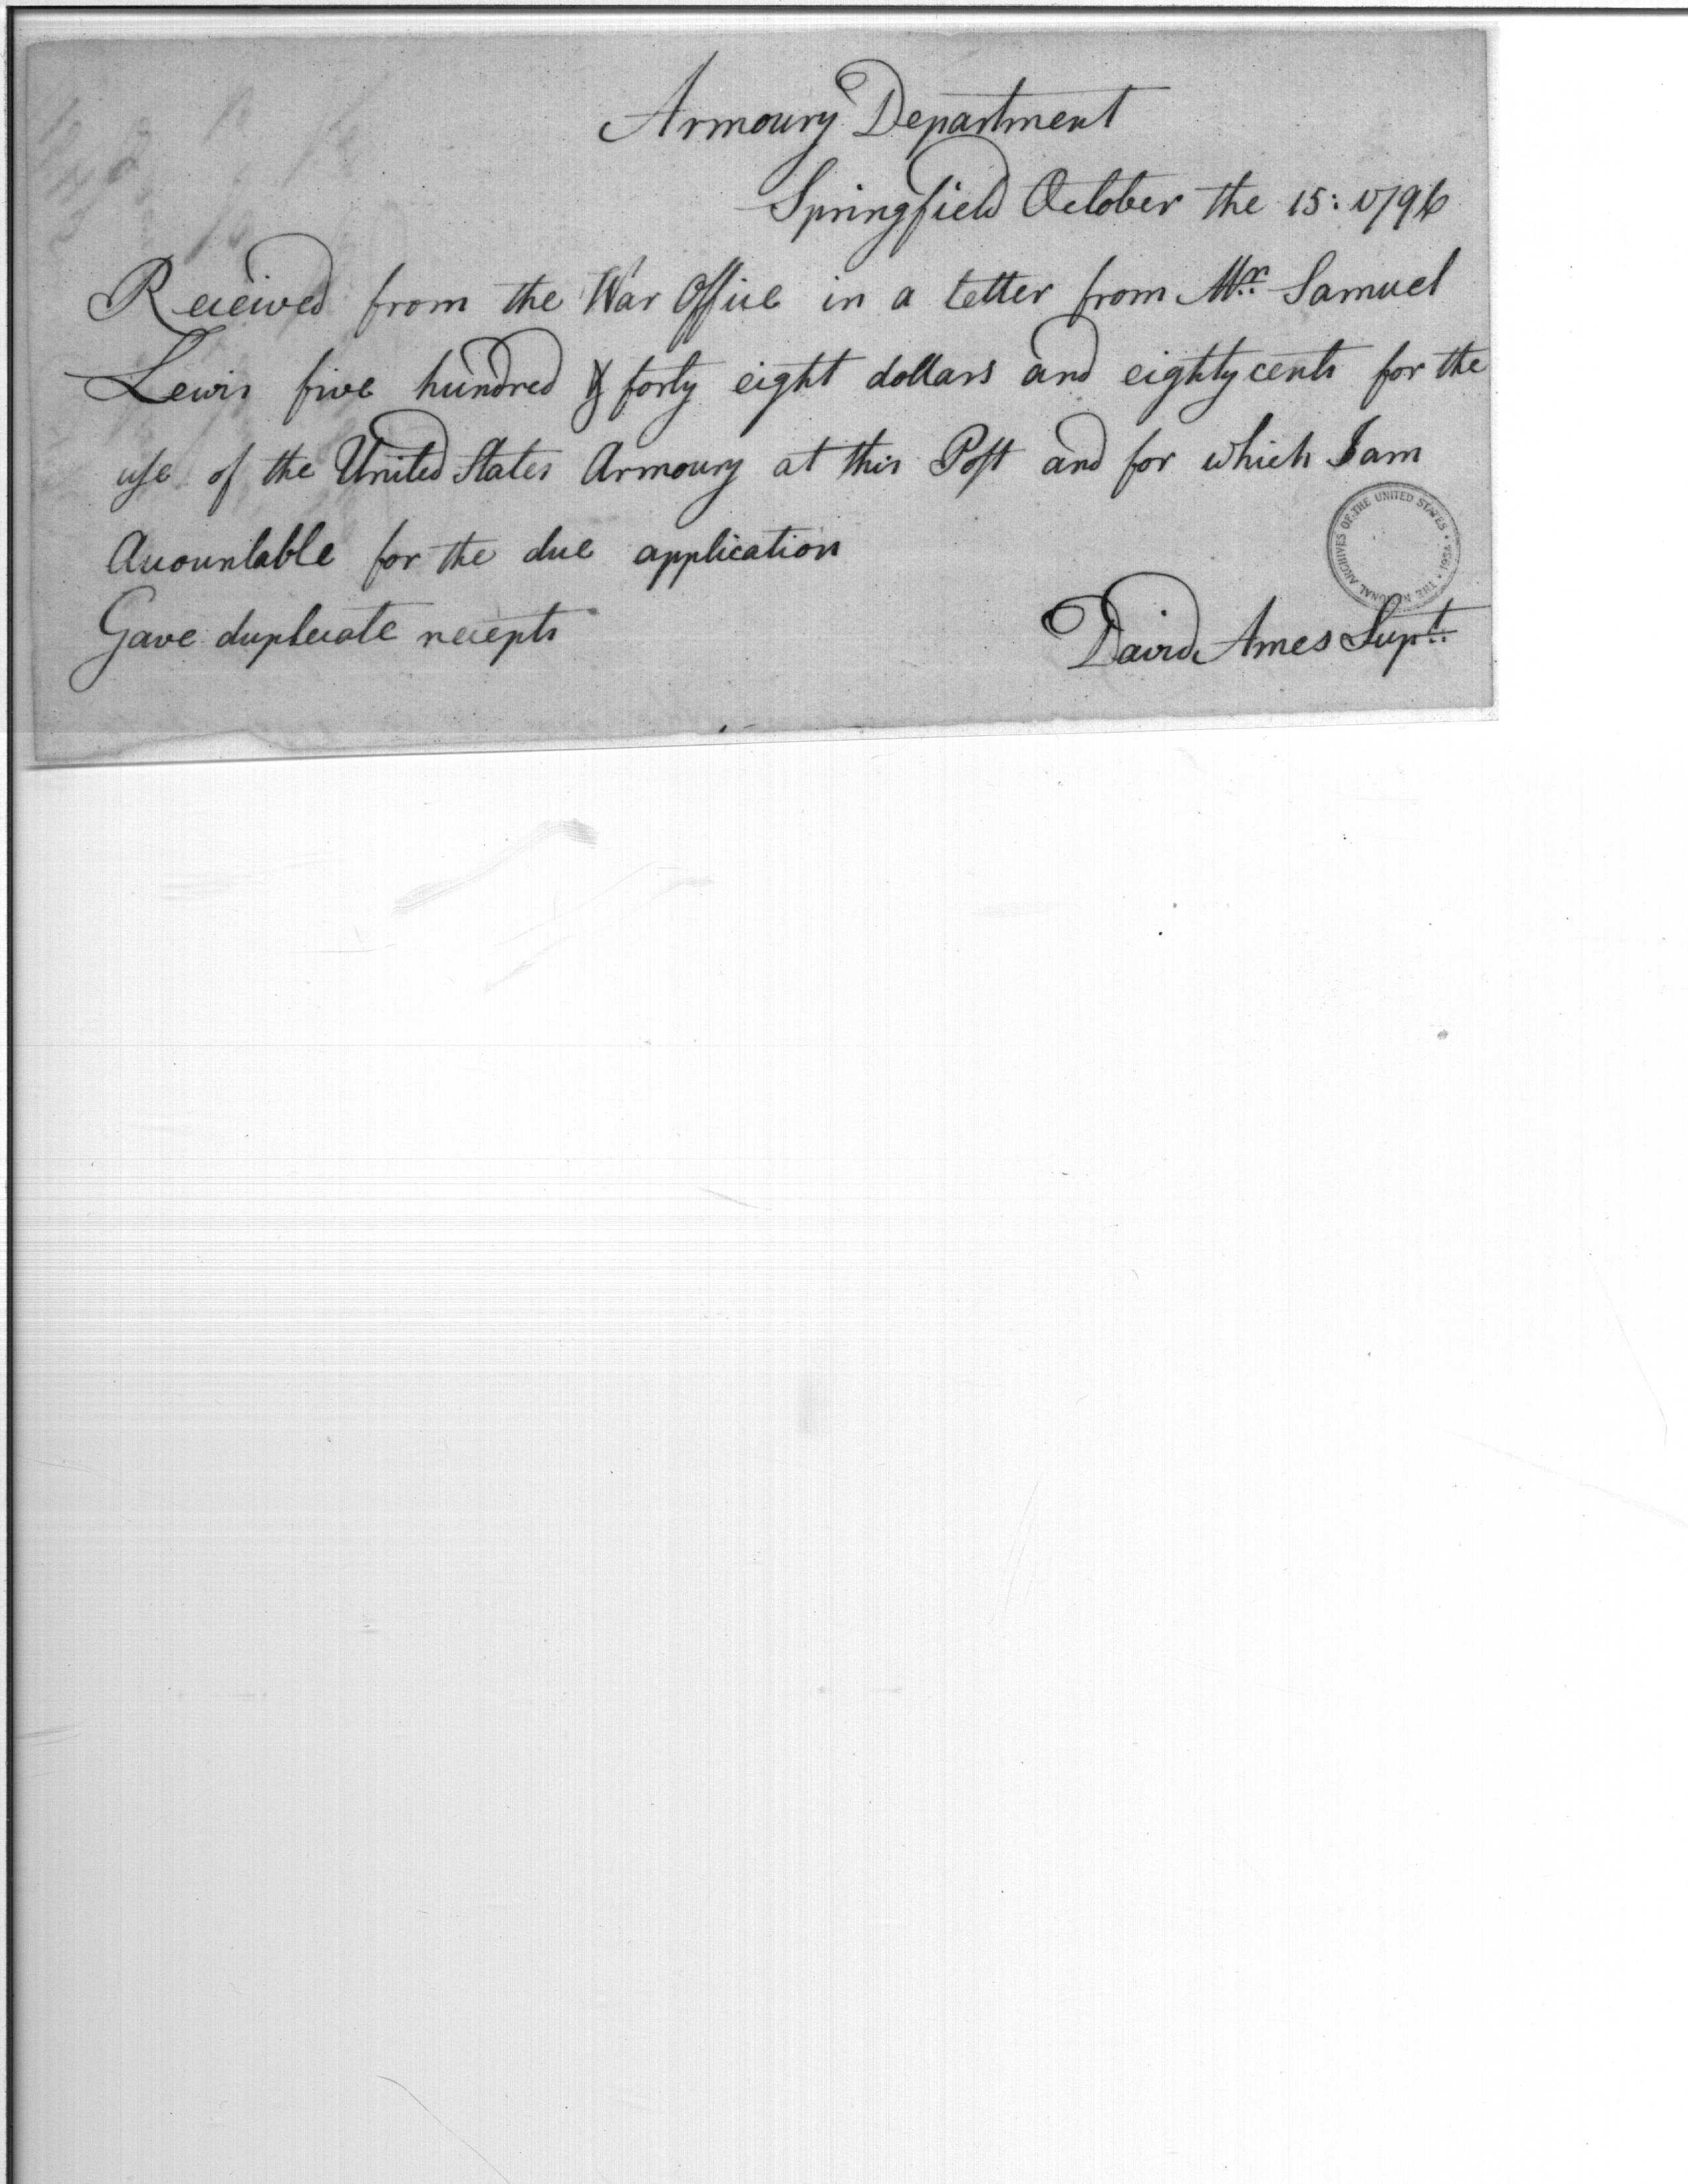 Armoury Department
Springfield October the 15: 1796
Received from the War Office in a letter from Mr. Samuel
Lewis five hundred & forty eight dollars and eighty cents for the
use of the United States Armoury at this Post and for which I am
Accountable for the due application
Gave duplicate receipts
David Ames Supt.
THE NATIONAL ARCHIVES OF THE UNITED STATES • 1934 •